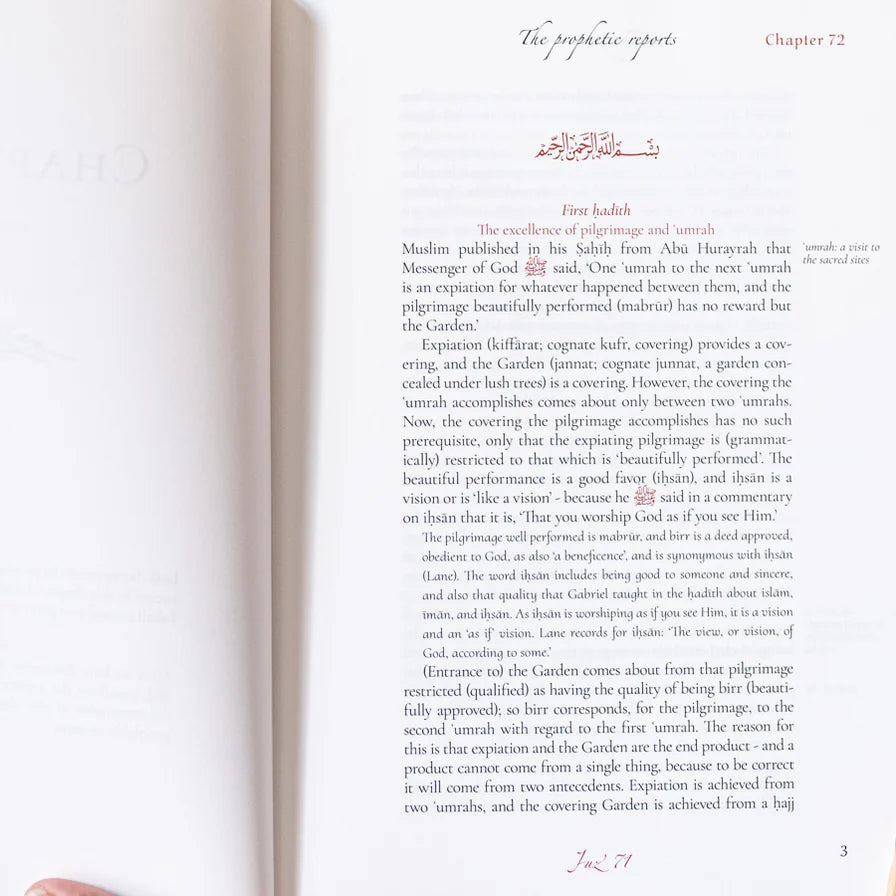 The prophetic reports
Chapter 72
بسم الله الرحمن الرحيم
First ḥadīth
The excellence of pilgrimage and ʿumrah
Muslim published in his Ṣaḥīḥ from Abū Hurayrah that
Messenger of God ﷺ said, ‘One ʿumrah to the next ʿumrah
is an expiation for whatever happened between them, and the
pilgrimage beautifully performed (mabrūr) has no reward but
the Garden.’
ʿumrah: a visit to
the sacred sites
Expiation (kiffārat; cognate kufr, covering) provides a cov-
ering, and the Garden (jannat; cognate junnat, a garden con-
cealed under lush trees) is a covering. However, the covering the
ʿumrah accomplishes comes about only between two ʿumrahs.
Now, the covering the pilgrimage accomplishes has no such
prerequisite, only that the expiating pilgrimage is (grammat-
ically) restricted to that which is ‘beautifully performed’. The
beautiful performance is a good favor (iḥsān), and iḥsān is a
vision or is ‘like a vision’ - because he ﷺ said in a commentary
on iḥsān that it is, ‘That you worship God as if you see Him.’
The pilgrimage well performed is mabrūr, and birr is a deed approved,
obedient to God, as also ‘a beneficence’, and is synonymous with iḥsān
(Lane). The word iḥsān includes being good to someone and sincere,
and also that quality that Gabriel taught in the ḥadīth about islām,
īmān, and iḥsān. As iḥsān is worshiping as if you see Him, it is a vision
and an ‘as if’ vision. Lane records for iḥsān: ‘The view, or vision, of
God, according to some.’
(Entrance to) the Garden comes about from that pilgrimage
restricted (qualified) as having the quality of being birr (beauti-
fully approved); so birr corresponds, for the pilgrimage, to the
second ʿumrah with regard to the first ʿumrah. The reason for
this is that expiation and the Garden are the end product - and a
product cannot come from a single thing, because to be correct
it will come from two antecedents. Expiation is achieved from
two ʿumrahs, and the covering Garden is achieved from a ḥajj
Juz 71
3